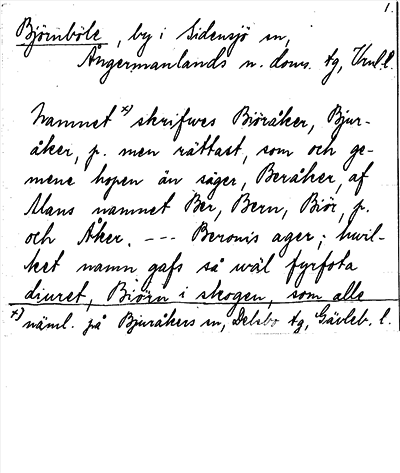 1.
Björnböle, by i Sidensjö sn,
Ångermanlands n. doms. tg, Vnl. l.
Namnet *) skrifves Biöråker, Bjur-
åker, p. men rättast, som och ge-
mene hopen än säger, Beråker, af
Mans namnet Ber, Bern, Biör, p.
och Åker. --- Beronis ager; hwil-
ket namn gafs så wäl fyrfota
diuret, Biörn i skogen, som alle
*) näml. på Bjuråkers sn, Delsbo tg, Gävleb. l.